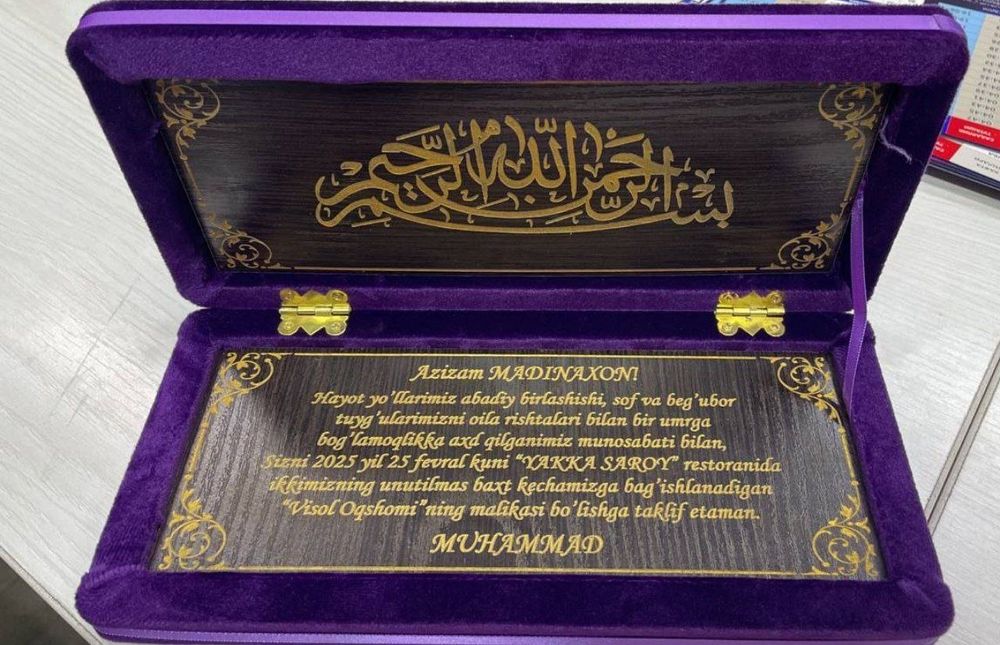 بسم الله الرحمن الرحيم
Azizam MADINAXON!
Hayot yo'llarimiz abadiy birlashishi, sof va beg'ubor
tuyg'ularimizni oila rishtalari bilan bir umrga
bog'lamoqlikka axd qilganimiz munosabati bilan,
Sizni 2025 yil 25 fevral kuni "YAKKA SAROY" restoranida
ikkimizning unutilmas baxt kechamizga bag'ishlanadigan
"Visol Oqshomi"ning malikasi bo'lishga taklif etaman.
MUHAMMAD